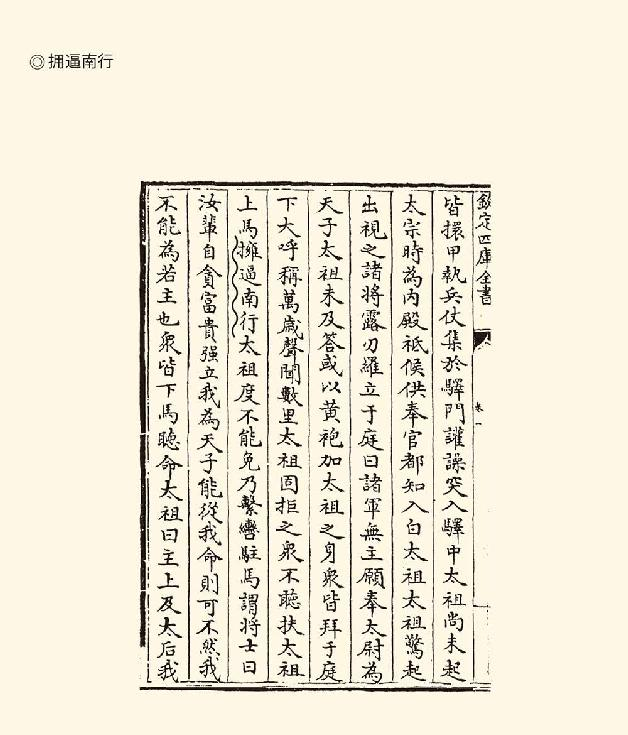 ◎ 拥逼南行
欽定四庫全書
卷一
皆擐甲執兵仗集於驛門讙譟突入驛中太祖尚未起
太宗時為內殿祗候供奉官都知入白太祖太祖驚起
出視之諸將露刃羅立于庭曰諸軍無主願奉太尉為
天子太祖未及答或以黄袍加太祖之身衆皆拜于庭
下大呼稱萬歲聲聞數里太祖固拒之衆不聽扶太祖
上馬擁逼南行太祖度不能免乃繫轡駐馬謂將士曰
汝輩自貪富貴强立我為天子能從我命則可不然我
不能為若主也衆皆下馬聴命太祖曰主上及太后我